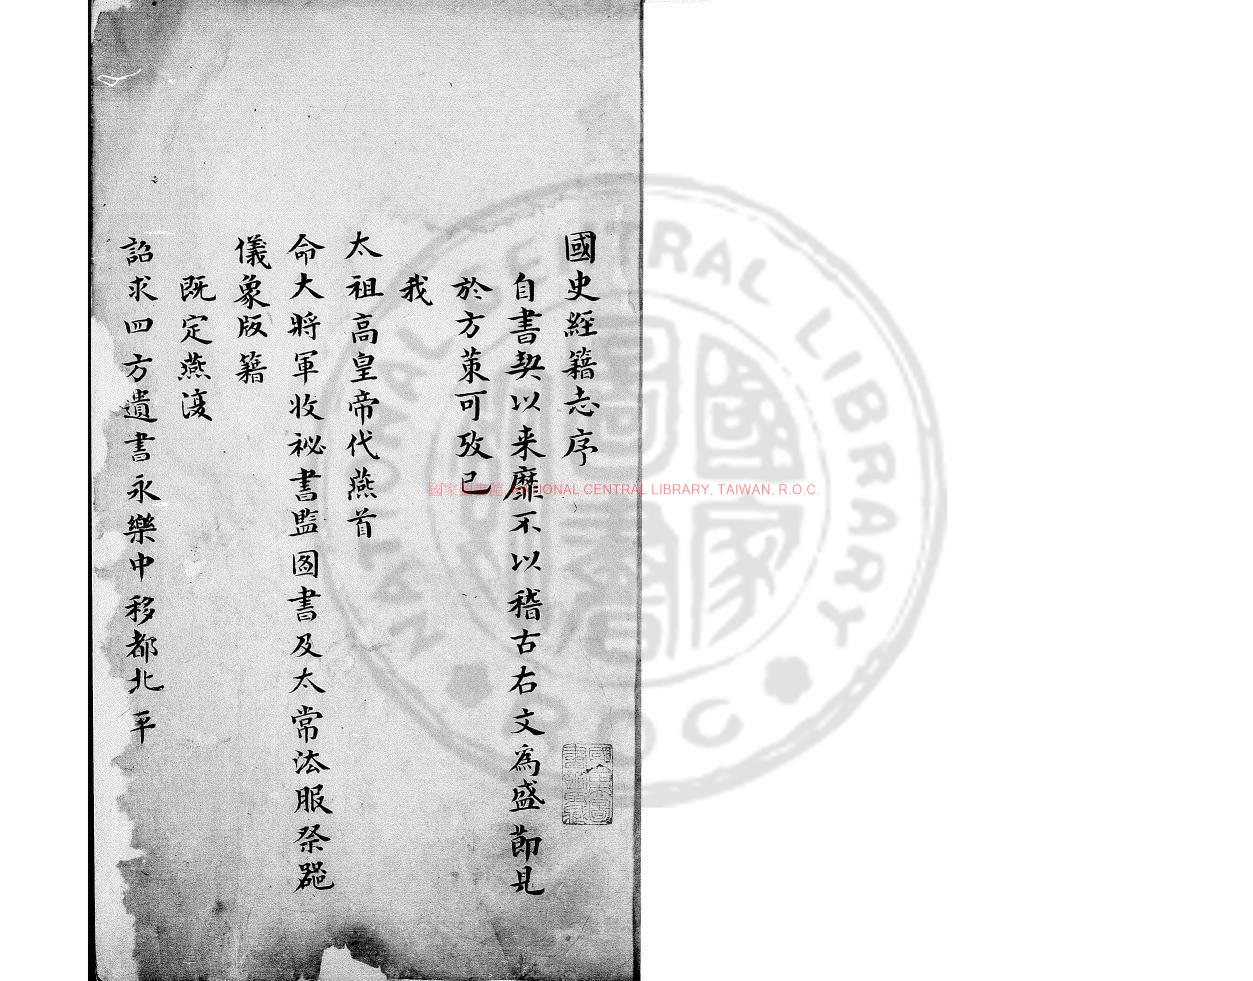 國史經籍志序
自書契以来靡不以稽古右文為盛節見
於方䇿可攷已
我
太祖高皇帝代燕首
命大將軍收祕書監圖書及太常法服祭器
儀象版籍
既定燕復
詔求四方遺書永樂中移都北平
國家圖書館 NATIONAL CENTRAL LIBRARY, TAIWAN, R.O.C.
NATIONAL CENTRAL LIBRARY
R.O.C.